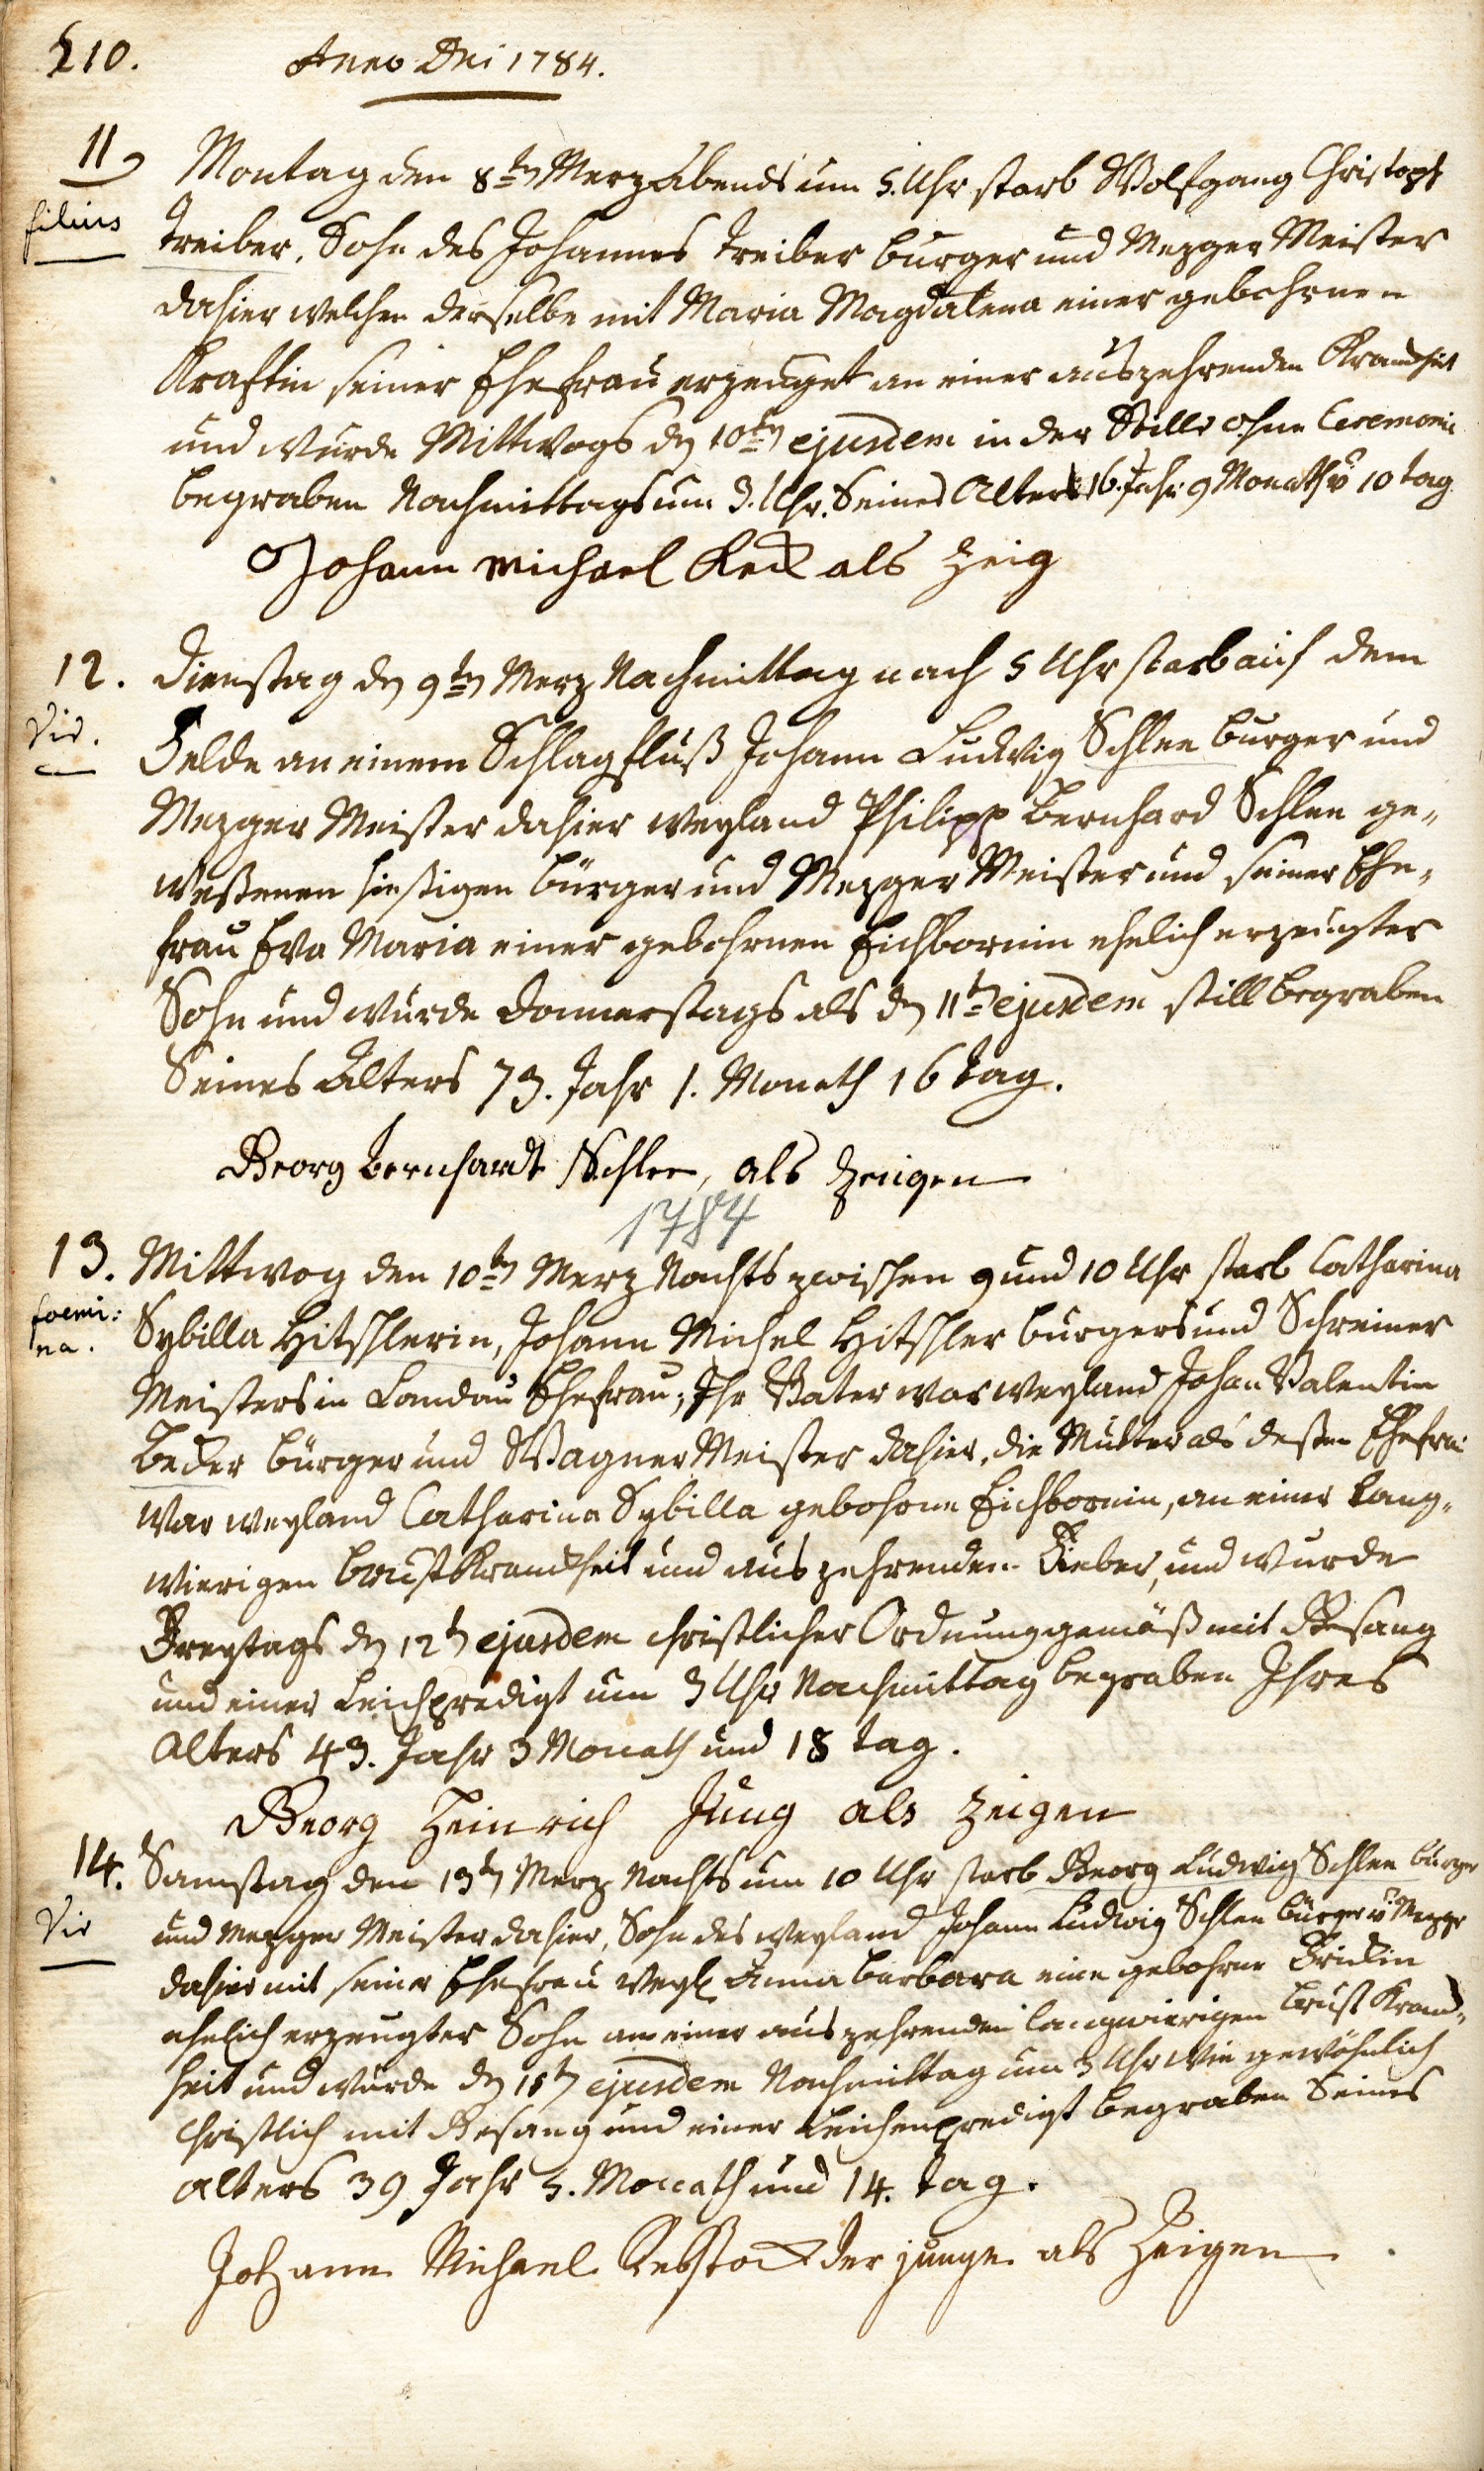 210.
Anno Dni 1784.
11.
filius
Montag den 8ten Merz Abends um 5. Uhr starb Wolfgang Christoph
Treiber, Sohn des Johannes Treiber burger und Mezger Meister
dahier welchen derselbe mit Maria Magdalena einer gebohrnen
Kraftin seiner Ehefrau erzeuget an einer auszehrenden Krankheit
und wurde Mittwogs den 10ten ejusdem in der Stille ohne Ceremonie
begraben Nachmittags um 3. Uhr. Seines Alters 16. Jahr 9 Monath u 10 tag
Johann Michael Keck als Zeig
12.
Vir.
Dienstag den 9ten Merz Nachmittag nach 5 Uhr starb auf dem
Felde an einem Schlagfluß Johann Ludwig Schlee burger und
Mezger Meister dahier weyland Philipp Bernhard Schlee ge„
weßenen hießigen bürger und Mezger Meister und seiner Ehe„
frau Eva Maria einer gebohrnen Eichbornin ehelich erzeugter
Sohn und wurde Donnerstags als den 11ten ejusdem still begraben
Seines Alters 73. Jahr 1. Monath 16 tag.
Georg Bernhardt Schlee, als Zeugen
1784
13.
foemi:
na.
Mittwog den 10ten Merz Nachts zwischen 9 und 10 Uhr starb Catharina
Sybilla Hitschlerin, Johann Michel Hitschler burgers und Schreiner
Meisters in Landau Ehefrau; Ihr Vater war weyland Johan Valentin
Becker bürger und Wagner Meister dahier, die Mutter als deßen Ehefrau
war weyland Catharina Sybilla gebohrne Eichbornin, an einer lang„
wierigen brustkrankheit und auszehrenden Fieber, und wurde
Freytags den 12ten ejusdem christlicher Ordnung gemäß mit Gesang
und einer Leichpredigt um 3 Uhr Nachmittag begraben Ihres
Alters 43. Jahr 3 Monath und 18 tag.
Georg Heinrich Jung als Zeigen
14.
Vir
Samstag den 13ten Merz Nachts um 10 Uhr starb Georg Ludwig Schlee bürger
und Mezger Meister dahier, Sohn des weyland Johann Ludwig Schlee bürger u Mezger
dahier mit seiner Ehefrau weyl Anna Barbara eine gebohrne Frickin
ehelich erzeugter Sohn an einer auszehrenden langwierigen brust Kranck„
heit und wurde den 15ten ejusdem Nachmittag um 3 Uhr wie gewöhnlich
christlich mit Gesang und einer Leichenpredigt begraben Seines
Alters 39 Jahr 5. Monath und 14. tag.
Johann Michael Rebstock der junge als Zeigen